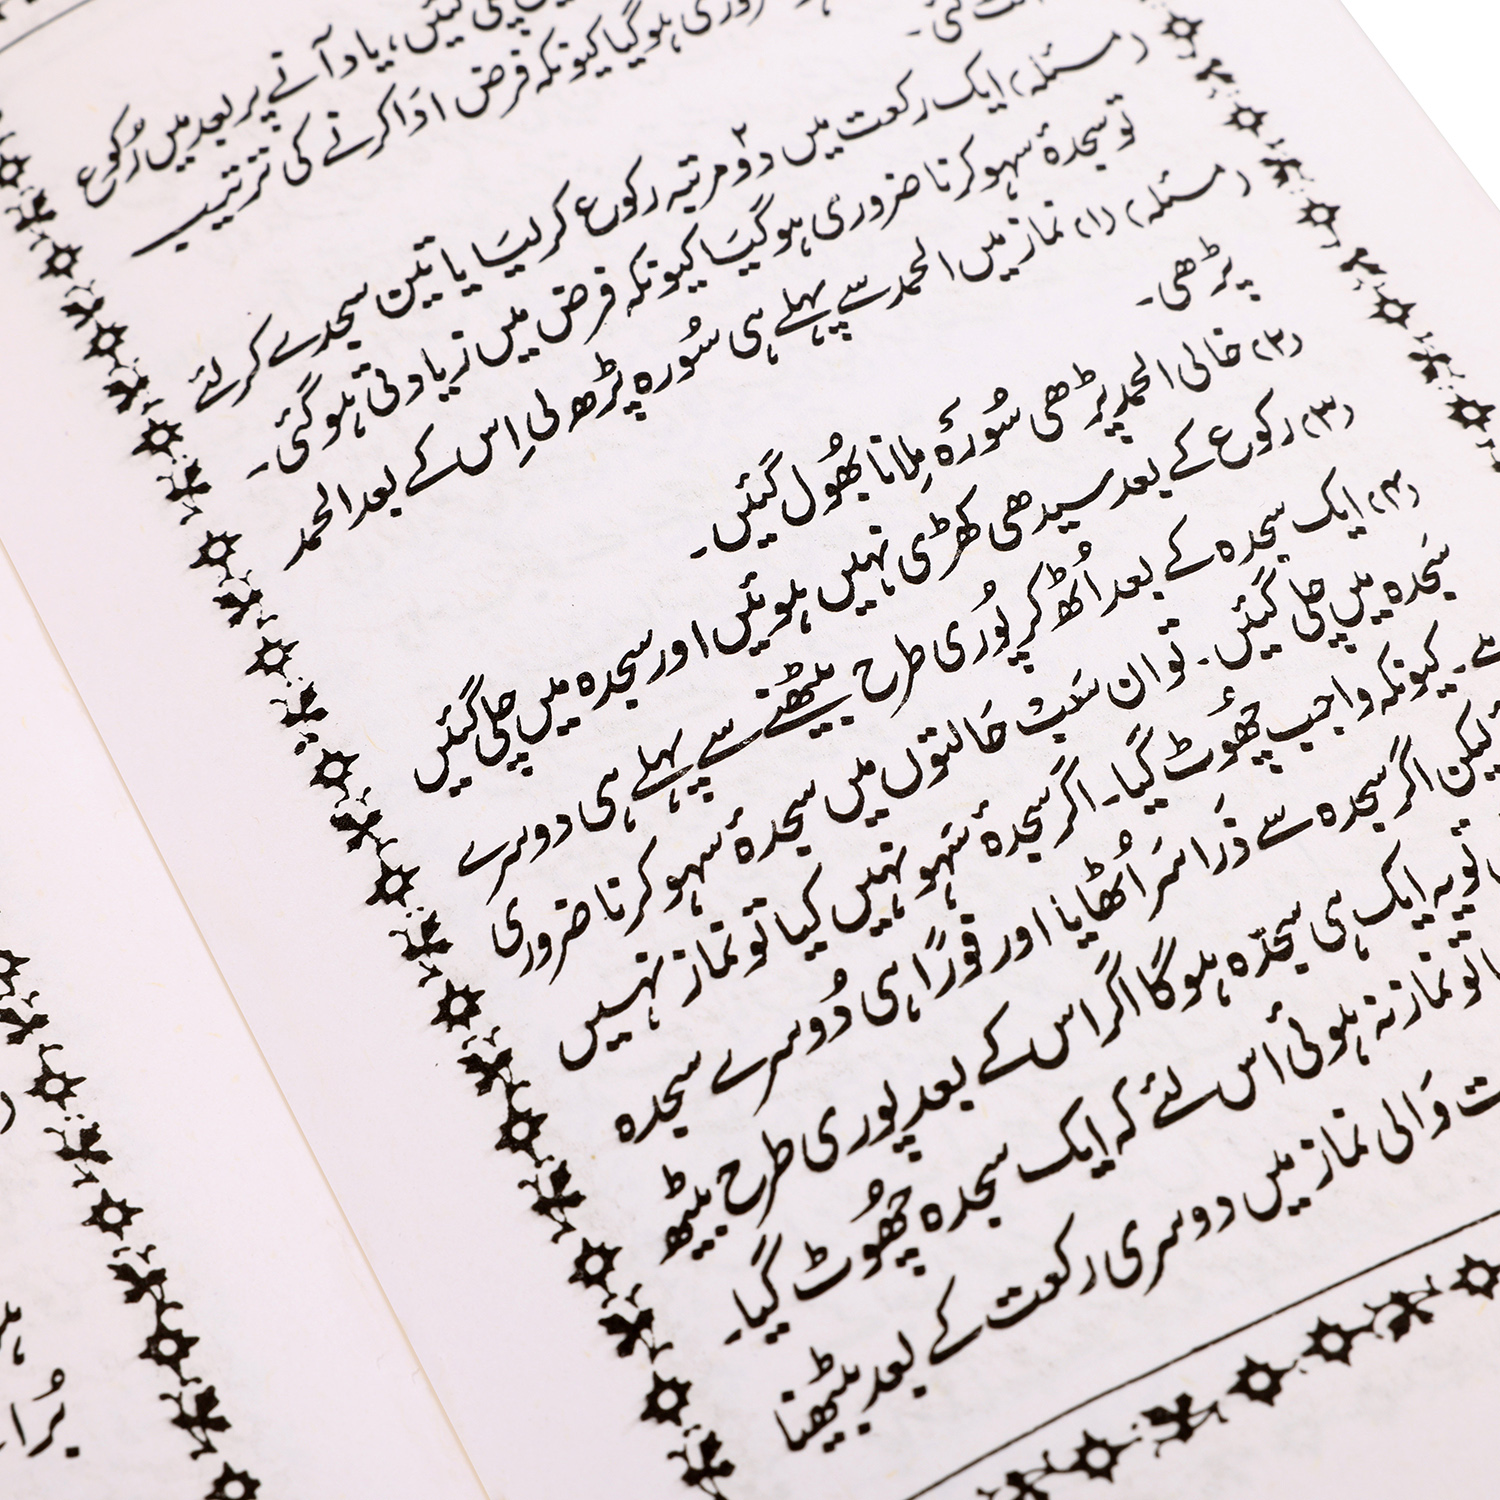 گئیں، یاد آنے پر بعد میں رُکوع
ضروری ہو گیا کیونکہ فرض ادا کرنے کی ترتیب
گئی۔
(مسئلہ) ایک رکعت میں دو۲ مرتبہ رکوع کر لیَا یا تین سجدے کر لئے
تو سجدۂ سہو کرنا ضروری ہو گیَا کیونکہ فرض میں زیادتی ہو گئی۔
(مسئلہ) (۱) نماز میں الحمد سے پہلے ہی سُورہ پڑھ لی اِس کے بعد الحمد
پڑھی۔
(۲) خالی الحمد پڑھی سُورۂ مِلانا بھُول گیَئیں۔
(۳) رکوع کے بعد سیدھی کھڑی نہیں ہوئیں اور سجدہ میں چلی گیَئیں
(۴) ایک سجدہ کے بعد اُٹھ کر پُوری طرح بیٹھنے سے پہلے ہی دوسرے
سَجدہ میں چلی گیَئیں۔ تو ان سَب حَالتوں میں سجدۂ سہو کرنا ضروری
ہے۔ کیونکہ واجب چھُوٹ گیَا۔ اگر سجدۂ سَہو نہیں کیا تو نماز نہیں
لیکن اگر سجدہ سے ذَرا سَر اُٹھایا اور فورًا ہی دُوسرے سجدہ
تو یہ ایک ہی سجدہ ہوگا اگر اس کے بعد پوری طرح بیٹھ
تو نماز نہ ہوئی اس لئے کہ ایک سجدہ چھُوٹ گیَا۔
وَالی نماز میں دوسری رکعت کے بعد بیٹھنا
بُرا